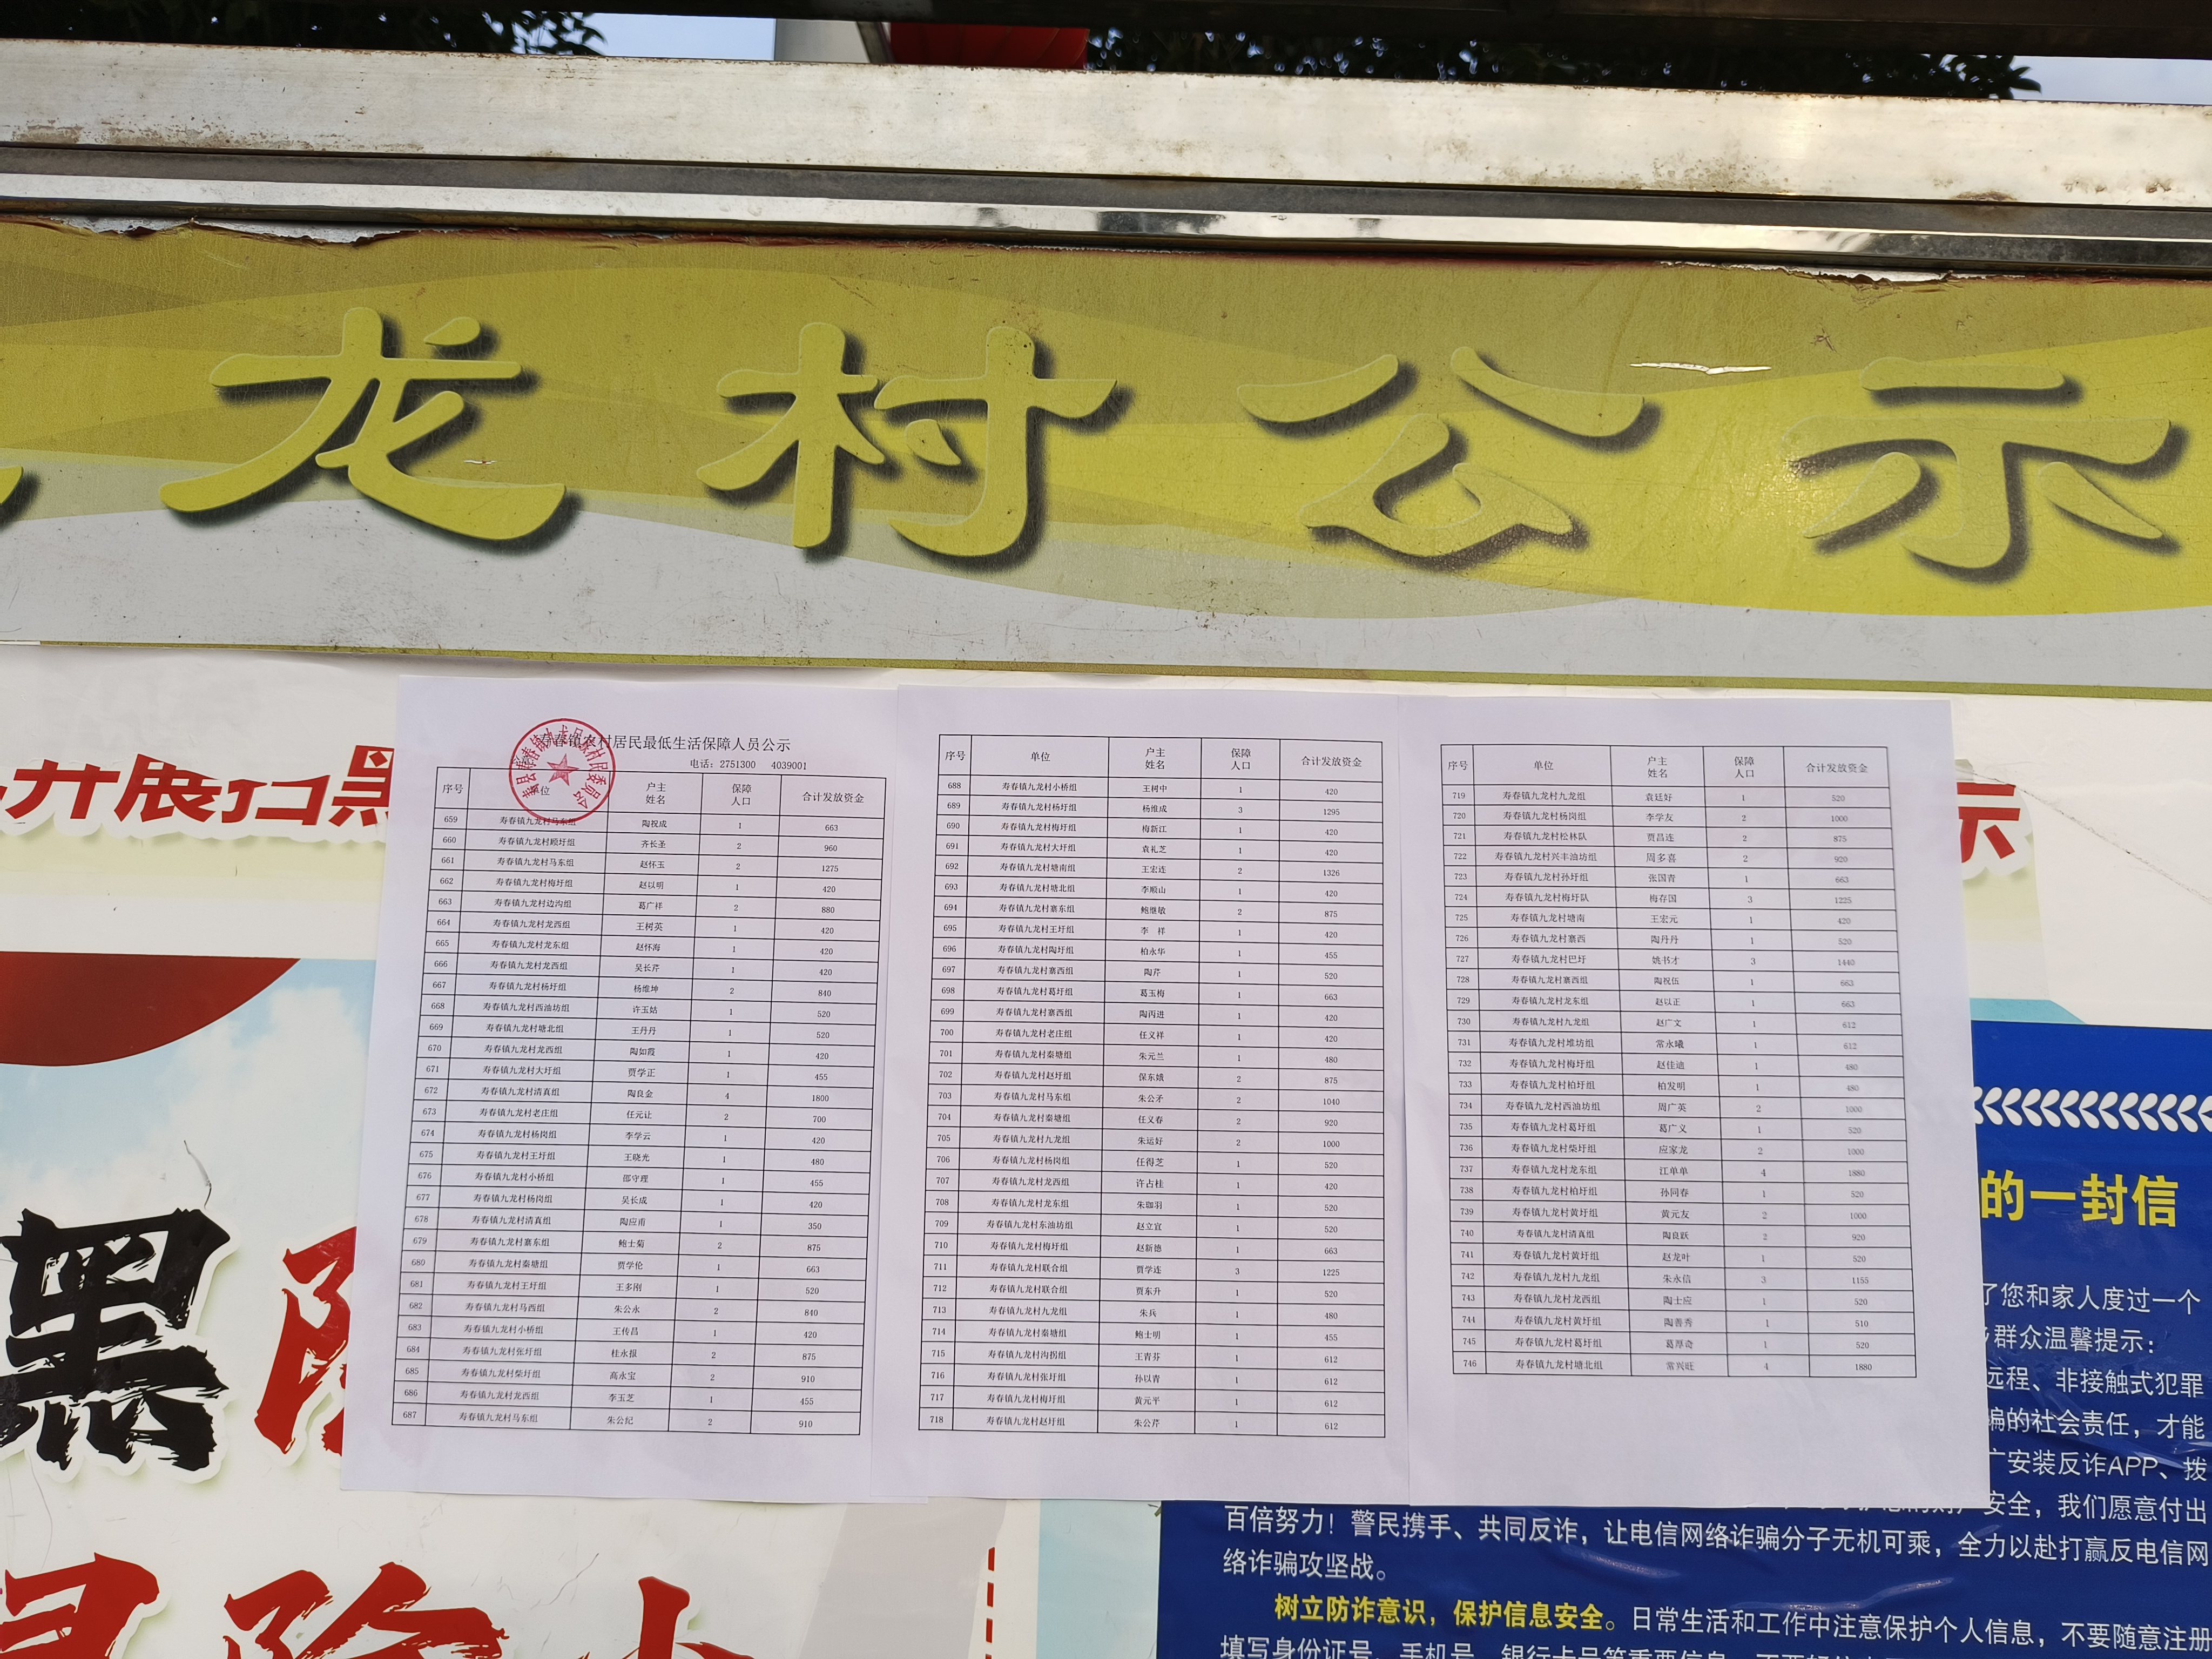 龙村公示
开展扫黑
示
寿春镇农村居民最低生活保障人员公示
电话：2751300 4039001
序号 单位 户主姓名 保障人口 合计发放资金
659 寿春镇九龙村马东组 陶祝成 1 663
660 寿春镇九龙村顾圩组 齐长圣 2 960
661 寿春镇九龙村马东组 赵怀玉 2 1275
662 寿春镇九龙村梅圩组 赵以明 1 420
663 寿春镇九龙村边沟组 葛广祥 2 880
664 寿春镇九龙村龙西组 王树英 1 420
665 寿春镇九龙村龙东组 赵怀海 1 420
666 寿春镇九龙村龙西组 吴长芹 1 420
667 寿春镇九龙村杨圩组 杨维坤 2 840
668 寿春镇九龙村西油坊组 许玉姑 1 520
669 寿春镇九龙村塘北组 王丹丹 1 520
670 寿春镇九龙村龙西组 陶如霞 1 420
671 寿春镇九龙村大圩组 贾学正 1 455
672 寿春镇九龙村清真组 陶良金 4 1800
673 寿春镇九龙村老庄组 任元让 2 700
674 寿春镇九龙村杨岗组 李学云 1 420
675 寿春镇九龙村王圩组 王晓光 1 480
676 寿春镇九龙村小桥组 邵守理 1 455
677 寿春镇九龙村杨岗组 吴长成 1 420
678 寿春镇九龙村清真组 陶应甫 1 350
679 寿春镇九龙村寨东组 鲍士菊 2 875
680 寿春镇九龙村秦塘组 贾学伦 1 663
681 寿春镇九龙村王圩组 王多刚 1 520
682 寿春镇九龙村马西组 朱公永 2 840
683 寿春镇九龙村小桥组 王传昌 1 420
684 寿春镇九龙村张圩组 桂永报 2 875
685 寿春镇九龙村柴圩组 高永宝 2 910
686 寿春镇九龙村龙西组 李玉芝 1 455
687 寿春镇九龙村马东组 朱公纪 2 910
序号 单位 户主姓名 保障人口 合计发放资金
688 寿春镇九龙村小桥组 王树中 1 420
689 寿春镇九龙村杨圩组 杨维成 3 1295
690 寿春镇九龙村梅圩组 梅新江 1 420
691 寿春镇九龙村大圩组 袁礼芝 1 420
692 寿春镇九龙村塘南组 王宏连 2 1326
693 寿春镇九龙村塘北组 李顺山 1 420
694 寿春镇九龙村寨东组 鲍继敏 2 875
695 寿春镇九龙村王圩组 李 祥 1 420
696 寿春镇九龙村陶圩组 柏永华 1 455
697 寿春镇九龙村寨西组 陶芹 1 520
698 寿春镇九龙村葛圩组 葛玉梅 1 663
699 寿春镇九龙村寨西组 陶丙进 1 420
700 寿春镇九龙村老庄组 任义祥 1 420
701 寿春镇九龙村秦塘组 朱元兰 1 480
702 寿春镇九龙村赵圩组 保东娥 2 875
703 寿春镇九龙村马东组 朱公矛 2 1040
704 寿春镇九龙村秦塘组 任义春 2 920
705 寿春镇九龙村九龙组 朱运好 2 1000
706 寿春镇九龙村杨岗组 任得芝 1 520
707 寿春镇九龙村龙西组 许占桂 1 420
708 寿春镇九龙村龙东组 朱珈羽 1 520
709 寿春镇九龙村东油坊组 赵立宣 1 520
710 寿春镇九龙村梅圩组 赵新德 1 663
711 寿春镇九龙村联合组 贾学连 3 1225
712 寿春镇九龙村联合组 贾东升 1 520
713 寿春镇九龙村九龙组 朱兵 1 480
714 寿春镇九龙村秦塘组 鲍士明 1 455
715 寿春镇九龙村沟拐组 王青芬 1 612
716 寿春镇九龙村张圩组 孙以青 1 612
717 寿春镇九龙村梅圩组 黄元平 1 612
718 寿春镇九龙村赵圩组 朱公芹 1 612
序号 单位 户主姓名 保障人口 合计发放资金
719 寿春镇九龙村九龙组 袁廷好 1 520
720 寿春镇九龙村杨岗组 李学友 2 1000
721 寿春镇九龙村松林队 贾昌连 2 875
722 寿春镇九龙村兴丰油坊组 周多喜 2 920
723 寿春镇九龙村孙圩组 张国青 1 663
724 寿春镇九龙村梅圩队 梅存国 3 1225
725 寿春镇九龙村塘南 王宏元 1 420
726 寿春镇九龙村寨西 陶丹丹 1 520
727 寿春镇九龙村巴圩 姚书才 3 1440
728 寿春镇九龙村寨西组 陶祝伍 1 663
729 寿春镇九龙村龙东组 赵以正 1 663
730 寿春镇九龙村九龙组 赵广文 1 612
731 寿春镇九龙村堆坊组 常永曦 1 612
732 寿春镇九龙村梅圩组 赵佳迪 1 480
733 寿春镇九龙村柏圩组 柏发明 1 480
734 寿春镇九龙村西油坊组 周广英 2 1000
735 寿春镇九龙村葛圩组 葛广义 1 520
736 寿春镇九龙村柴圩组 应家龙 2 1000
737 寿春镇九龙村龙东组 江单单 4 1880
738 寿春镇九龙村柏圩组 孙同春 1 520
739 寿春镇九龙村黄圩组 黄元友 2 1000
740 寿春镇九龙村清真组 陶良跃 2 920
741 寿春镇九龙村黄圩组 赵龙叶 1 520
742 寿春镇九龙村九龙组 朱永信 3 1155
743 寿春镇九龙村龙西组 陶士应 1 520
744 寿春镇九龙村黄圩组 陶善秀 1 510
745 寿春镇九龙村葛圩组 葛厚奇 1 520
746 寿春镇九龙村塘北组 常兴旺 4 1880
黑
的一封信
了您和家人度过一个
群众温馨提示：
远程、非接触式犯罪
骗的社会责任，才能
安装反诈APP、拨
安全，我们愿意付出
百倍努力！警民携手、共同反诈，让电信网络诈骗分子无机可乘，全力以赴打赢反电信网
络诈骗攻坚战。
树立防诈意识，保护信息安全。日常生活和工作中注意保护个人信息，不要随意注册
填写身份证号、手机号、银行卡号等重要信息，